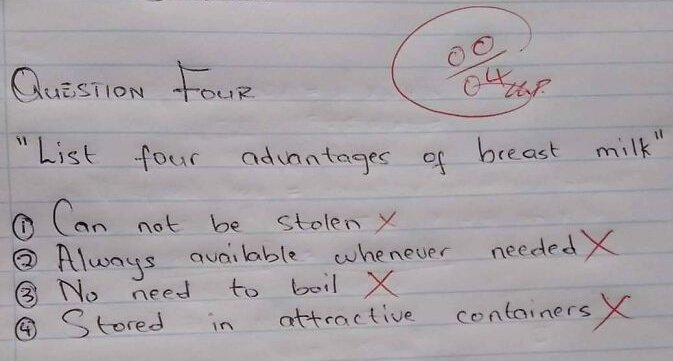 00
04
QUESTION FOUR
"List four advantages of breast milk"
① Can not be stolen X
② Always available whenever needed X
③ No need to boil X
④ Stored in attractive containers X